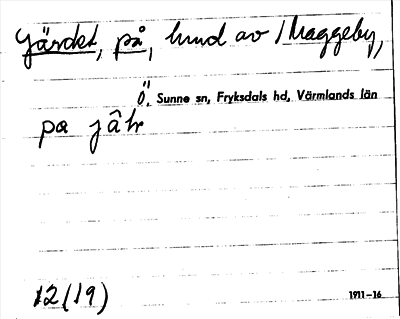 Gärdet, på, hmd av Maggeby,
Ö. Sunne sn, Fryksdals hd, Värmlands län
pa jâtr
12(19)
1911-16